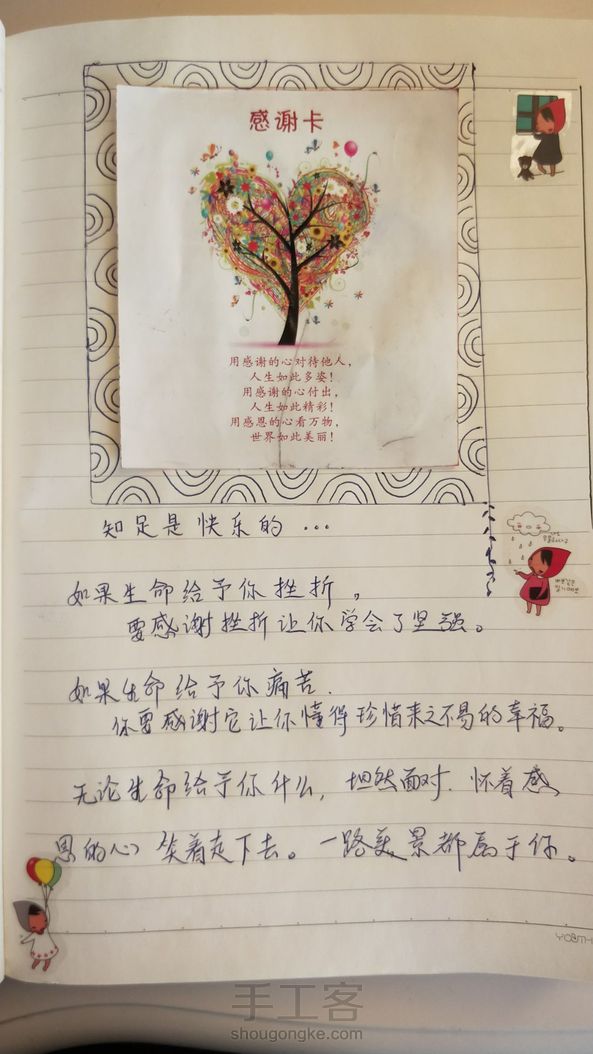 感谢卡
用感谢的心对待他人，
人生如此多姿！
用感谢的心付出，
人生如此精彩！
用感恩的心看万物，
世界如此美丽！
知足是快乐的…
如果生命给予你挫折。
要感谢挫折让你学会了坚强。
如果生命给予你痛苦.
你要感谢它让你懂得珍惜来之不易的幸福。
无论生命给予你什么，坦然面对.怀着感
恩的心笑着走下去。一路美景都属于你。
手工客
shougongke.com